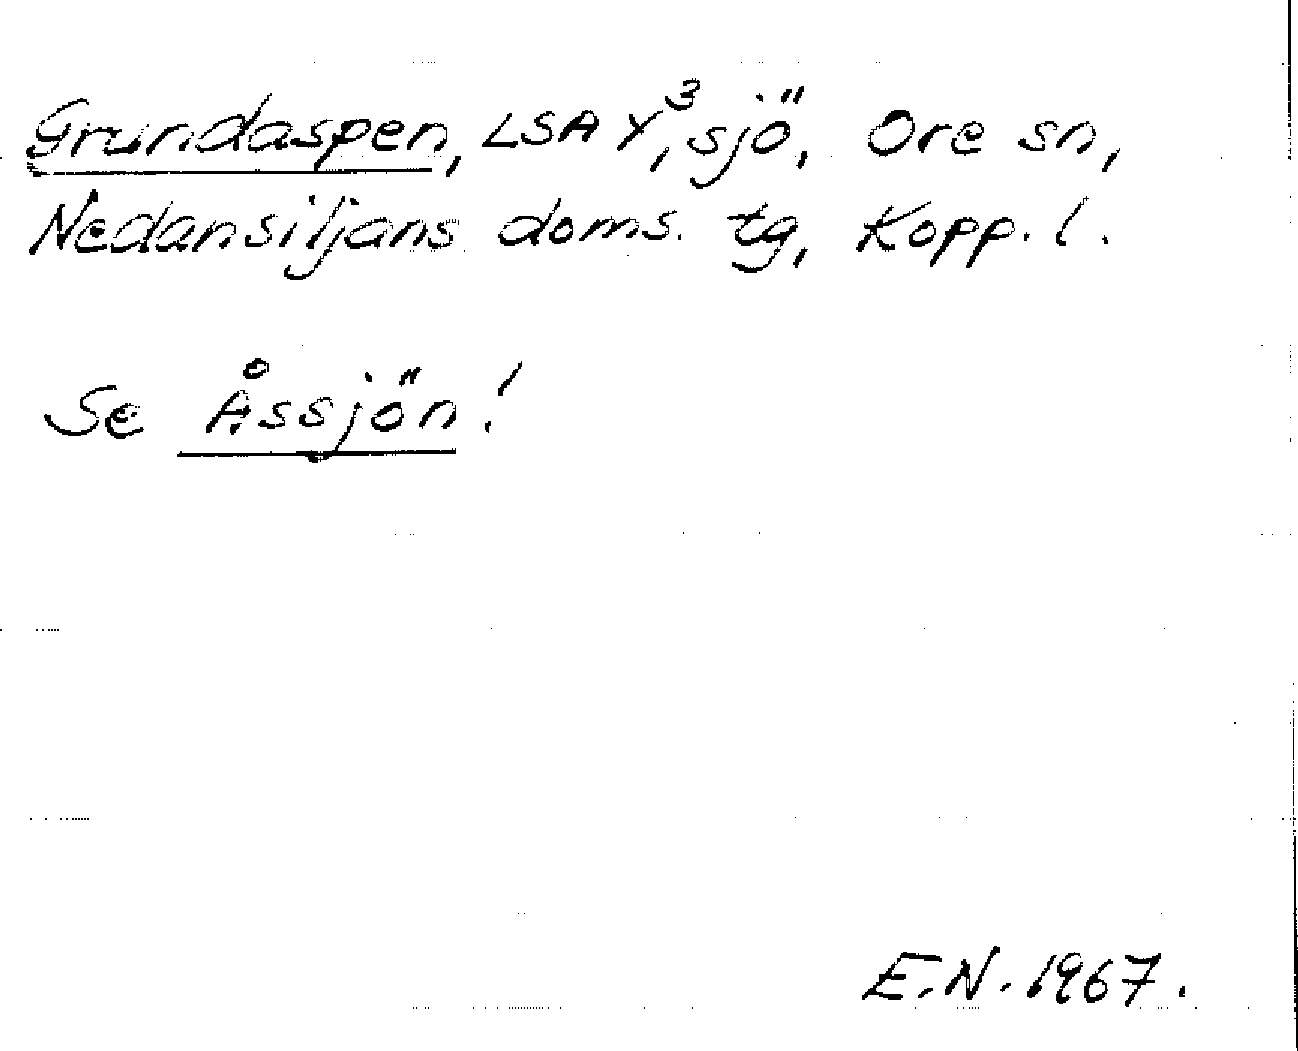 Grundaspen, LSA Y³, sjö, Ore sn,
Nedansiljans doms. tg, Kopp. l.
Se Åssjön!
E.N. 1967.